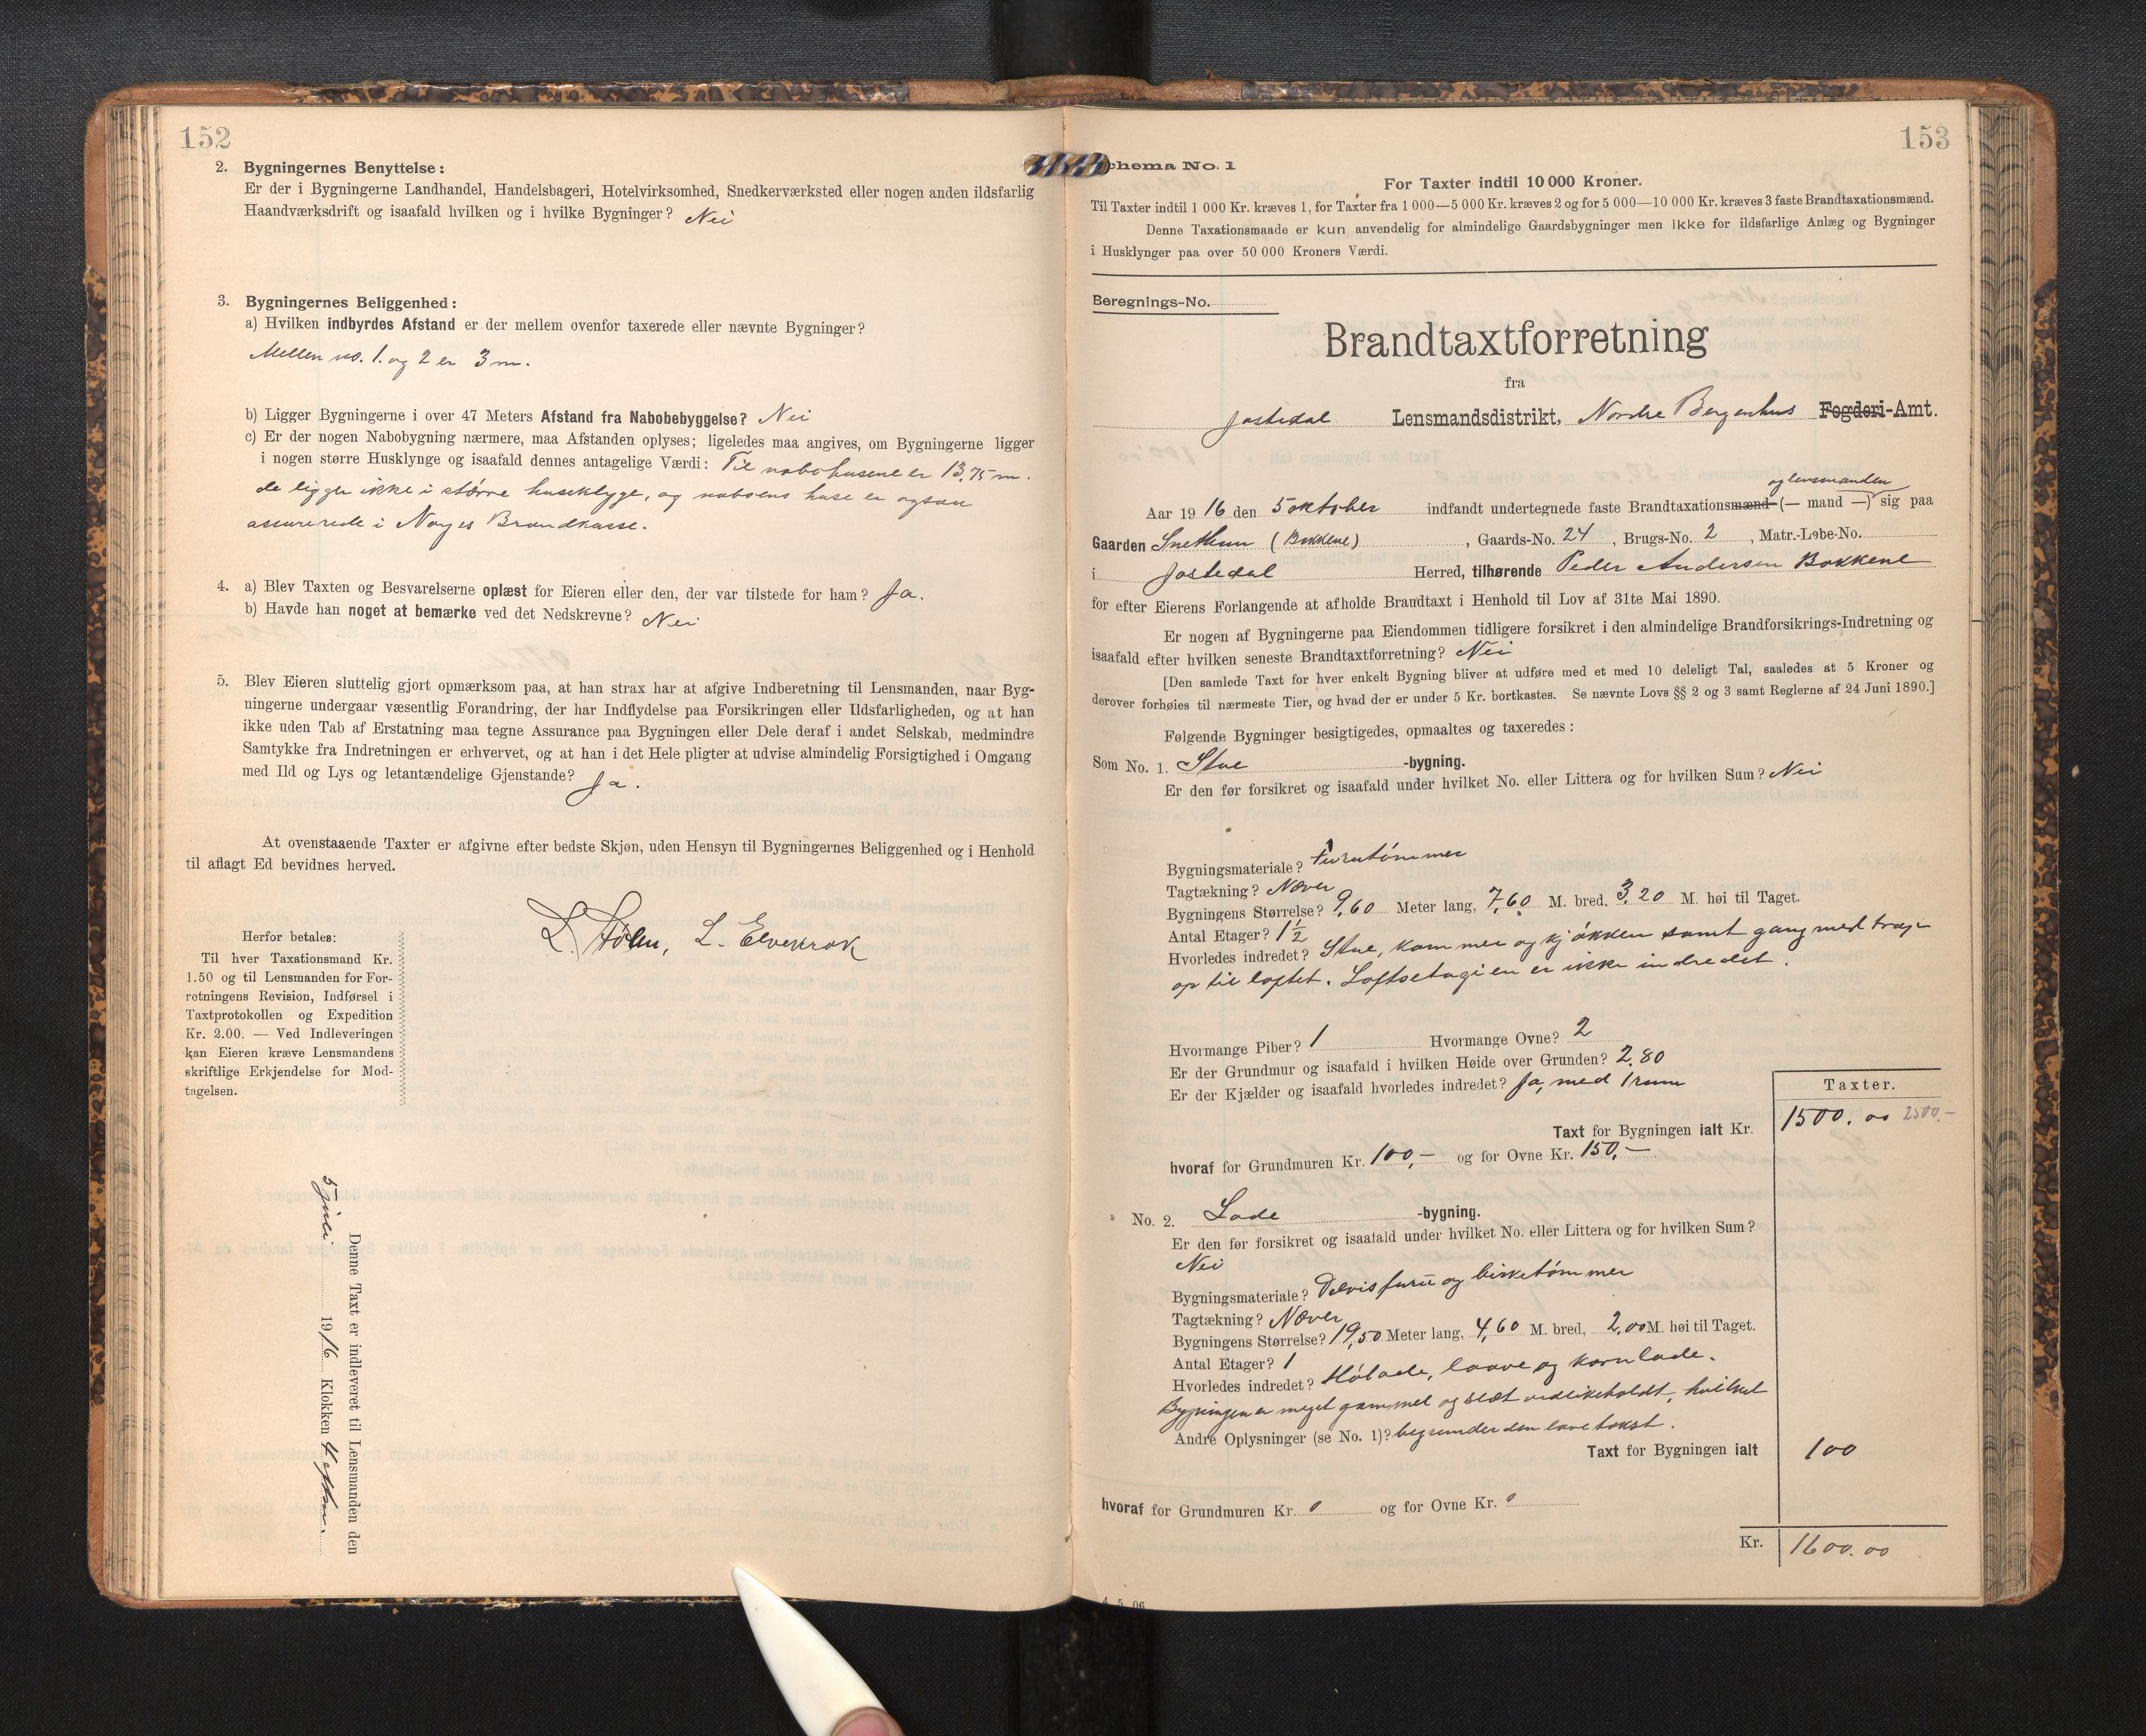 152
2. Bygningernes Benyttelse:
Er der i Bygningerne Landhandel, Handelsbageri, Hotelvirksomhed, Snedkerværksted eller nogen anden ildsfarlig
Haandværksdrift og isaafald hvilken og i hvilke Bygninger? Nei
3. Bygningernes Beliggenhed:
a) Hvilken indbyrdes Afstand er der mellem ovenfor taxerede eller nævnte Bygninger?
Mellem no. 1. og 2 er 3 m.
b) Ligger Bygningerne i over 47 Meters Afstand fra Nabobebyggelse? Nei
c) Er der nogen Nabobygning nærmere, maa Afstanden oplyses; ligeledes maa angives, om Bygningerne ligger
i nogen større Husklynge og isaafald dennes antagelige Værdi: Til nabohusene er 13,75 m.
de ligger ikke i større huseklyge, og naboens huse er ogsaa
assurerede i Norges Brandkasse.
4. a) Blev Taxten og Besvarelserne oplæst for Eieren eller den, der var tilstede for ham? Ja.
b) Havde han noget at bemærke ved det Nedskrevne? Nei
5. Blev Eieren sluttelig gjort opmærksom paa, at han strax har at afgive Indberetning til Lensmanden, naar Byg-
ningerne undergaar væsentlig Forandring, der har Indflydelse paa Forsikringen eller Ildsfarligheden, og at han
ikke uden Tab af Erstatning maa tegne Assurance paa Bygningen eller Dele deraf i andet Selskab, medmindre
Samtykke fra Indretningen er erhvervet, og at han i det Hele pligter at udvise almindelig Forsigtighed i Omgang
med Ild og Lys og letantændelige Gjenstande? Ja.
At ovenstaaende Taxter er afgivne efter bedste Skjøn, uden Hensyn til Bygningernes Beliggenhed og i Henhold
til aflagt Ed bevidnes herved.
L. Elvekrok
Herfor betales:
Til hver Taxationsmand Kr.
1.50 og til Lensmanden for For-
retningens Revision, Indførsel i
Taxtprotokollen og Expedition
Kr. 2.00. — Ved Indleveringen
kan Eieren kræve Lensmandens
skriftlige Erkjendelse for Mod-
tagelsen.
Denne Taxt er indleveret til Lensmanden den
5 juli 1916 Klokken 4 eftm.
153
chema No. 1
For Taxter indtil 10 000 Kroner.
Til Taxter indtil 1 000 Kr. kræves 1, for Taxter fra 1 000—5 000 Kr. kræves 2 og for 5 000—10 000 Kr. kræves 3 faste Brandtaxationsmænd.
Denne Taxationsmaade er kun anvendelig for almindelige Gaardsbygninger men ikke for ildsfarlige Anlæg og Bygninger
i Husklynger paa over 50 000 Kroners Værdi.
Beregnings-No.
Brandtaxtforretning
fra
Jostedal Lensmandsdistrikt, Nordre Bergenhus Fogderi-Amt.
og lensmanden
Aar 1916 den 5 oktober indfandt undertegnede faste Brandtaxationsmænd (— mand —) sig paa
Gaarden Snethun (Bakkene), Gaards-No. 24, Brugs-No. 2, Matr.-Løbe-No.
i Jostedal Herred, tilhørende Peder Andersen Bakkene
for efter Eierens Forlangende at afholde Brandtaxt i Henhold til Lov af 31te Mai 1890.
Er nogen af Bygningerne paa Eiendommen tidligere forsikret i den almindelige Brandforsikrings-Indretning og
isaafald efter hvilken seneste Brandtaxtforretning? Nei
[Den samlede Taxt for hver enkelt Bygning bliver at udføre med et med 10 deleligt Tal, saaledes at 5 Kroner og
derover forhøies til nærmeste Tier, og hvad der er under 5 Kr. bortkastes. Se nævnte Lovs §§ 2 og 3 samt Reglerne af 24 Juni 1890.]
Følgende Bygninger besigtigedes, opmaaltes og taxeredes:
Som No. 1. Stue -bygning.
Er den før forsikret og isaafald under hvilket No. eller Littera og for hvilken Sum? Nei
Bygningsmateriale? Furutømmer
Tagtækning? Næver
Bygningens Størrelse? 9,60 Meter lang, 7,60 M. bred, 3,20 M. høi til Taget.
Antal Etager? 1½
Hvorledes indredet? Stue, kammer og kjøkken samt gang med trap
op til loftet. Loftsetagien er ikke indredet.
Hvormange Piber? 1 Hvormange Ovne? 2
Er der Grundmur og isaafald i hvilken Høide over Grunden? 2,80
Er der Kjælder og isaafald hvorledes indredet? Ja, med 1 rum
Taxter.
Taxt for Bygningen ialt Kr. 1500.00 2500,-
hvoraf for Grundmuren Kr. 100,— og for Ovne Kr. 150,—
No. 2. Lade -bygning.
Er den før forsikret og isaafald under hvilket No. eller Littera og for hvilken Sum?
Nei
Bygningsmateriale? Delvis furu og birketømmer
Tagtækning? Næver
Bygningens Størrelse? 19,50 Meter lang, 4,60 M. bred, 2,00 M. høi til Taget.
Antal Etager? 1
Hvorledes indredet? Hølade, laave og kornlade.
Bygningen er meget gammel og slet vedlikeholdt, hvilket
Andre Oplysninger (se No. 1)? begrunder den lave takst.
Taxt for Bygningen ialt 100
hvoraf for Grundmuren Kr. 0 og for Ovne Kr. 0
Kr. 1600.00
4. 5. 06